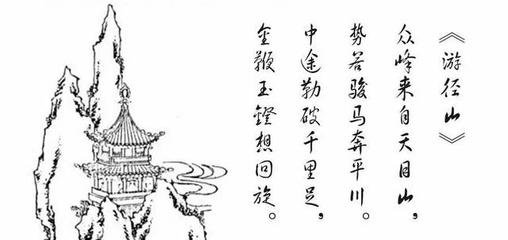 《游径山》
众峰来自天目山，
势若骏马奔平川。
中途勒破千里足，
金鞭玉镫想回旋。